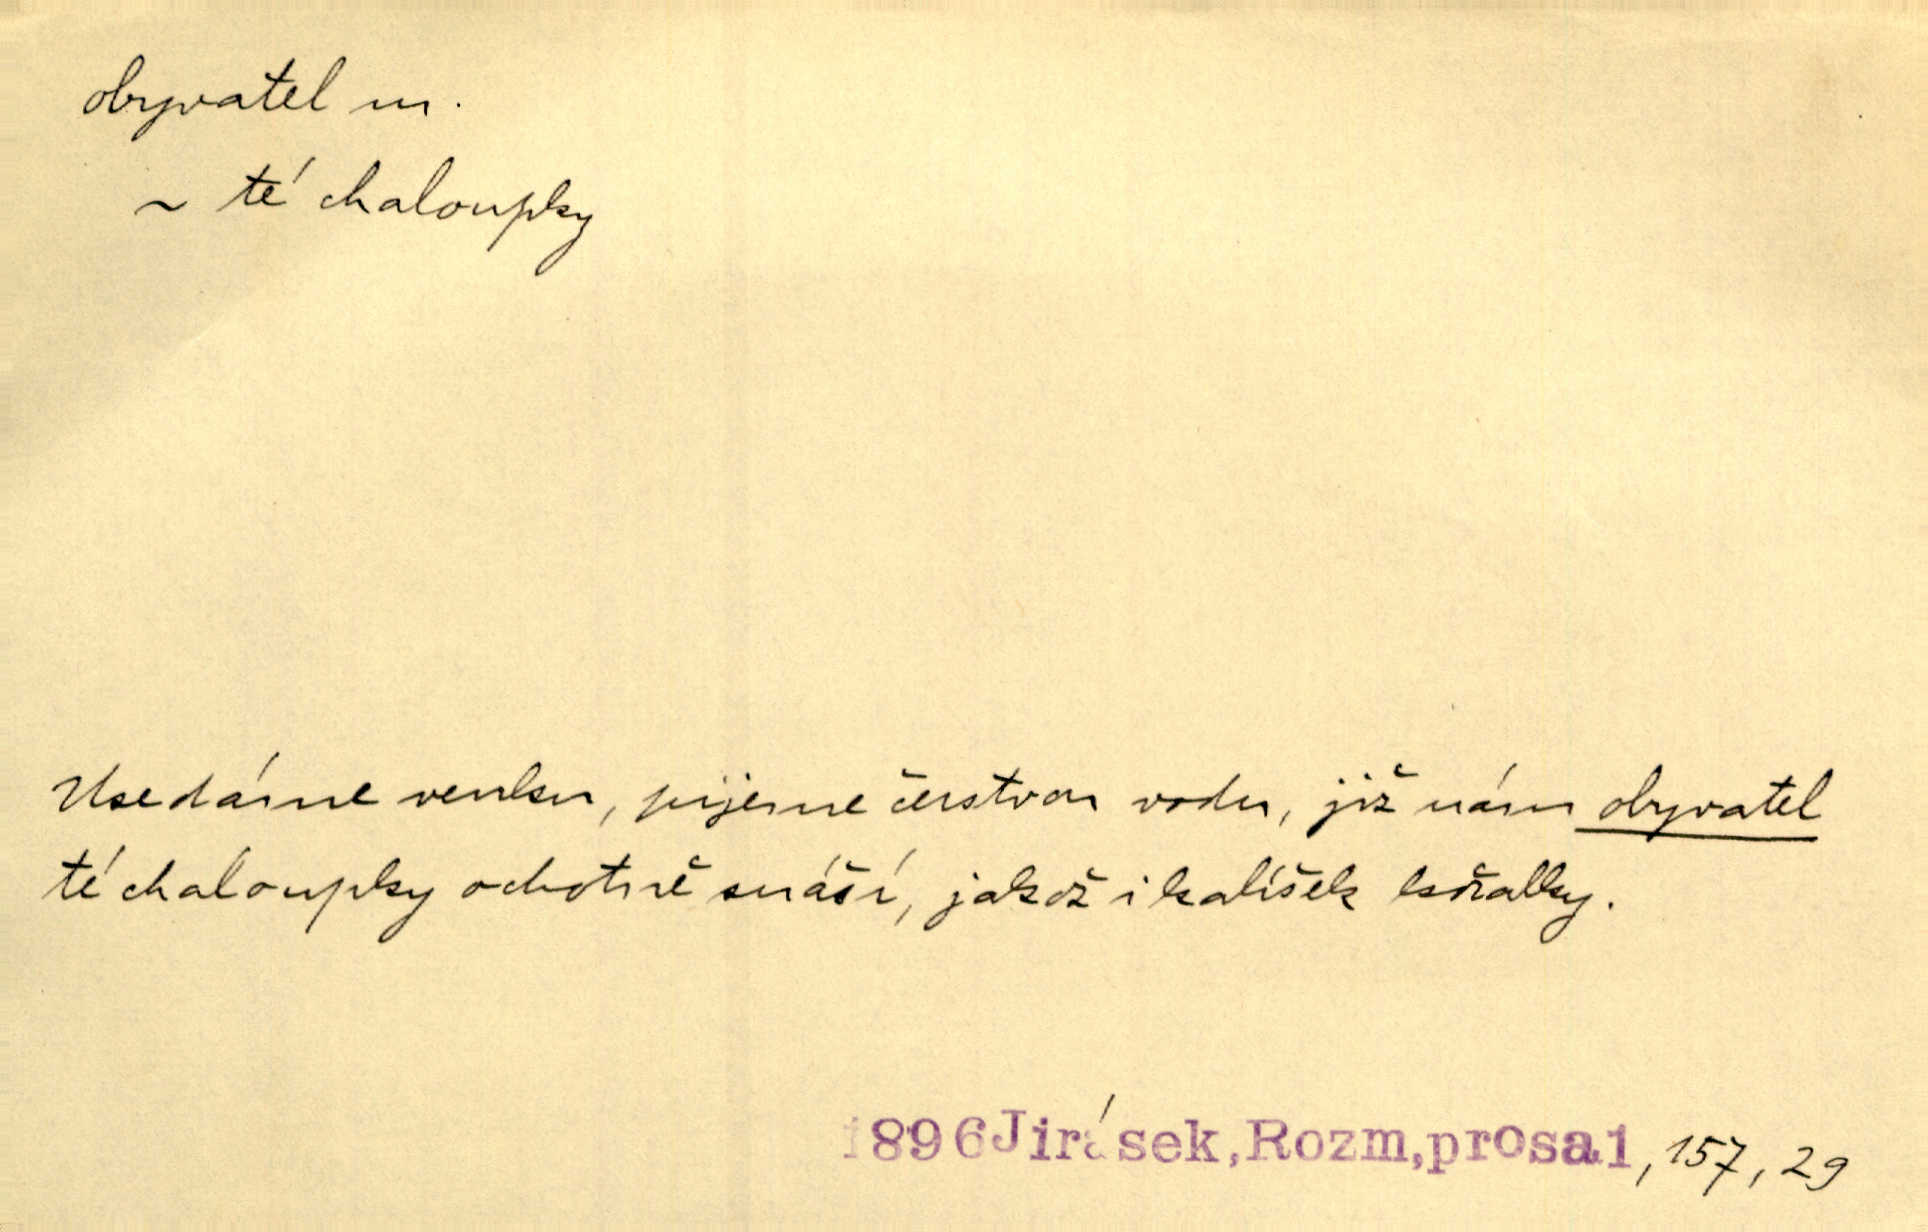 obyvatel m.
~ té chaloupky
Usedáme venku, pijeme čerstvou vodu, již nám obyvatel
té chaloupky ochotně snáší, jakož i kalíšek kořalky.
1896 Jirásek, Rozm, prosa1, 157, 29